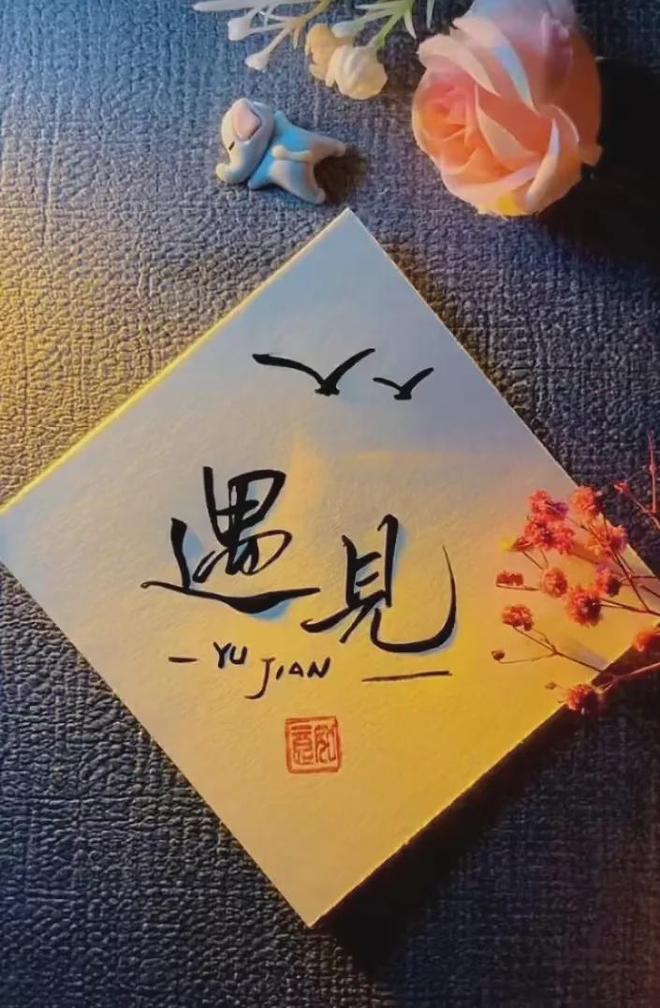 遇見
- YU JIAN -